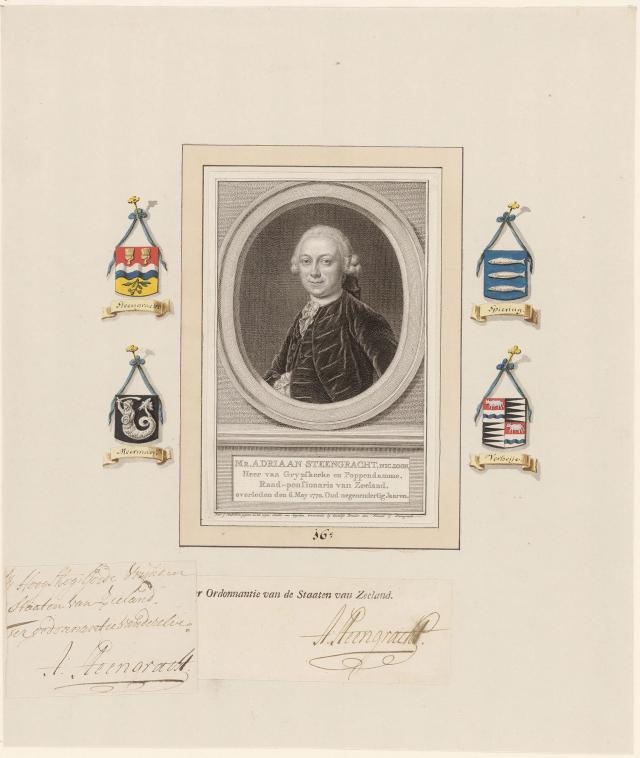 Steengracht
Spiering
Meerman
MR. ADRIAAN STEENGRACHT, NIC. ZOON,
Heer van Grypskerke en Poppendamme,
Raad-pensionaris van Zeeland,
overleden den 6. May 1770. Oud negenendertig Jaaren.
16.
Hoog
Staaten van Zeeland.
Ter ordonnantie van deselve
A. Steengracht.
r Ordonnantie van de Staaten van Zeeland.
A. Steengracht.